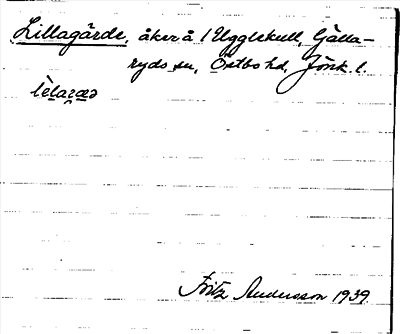 Lillagärde, åker å 1 Ugglekull, Gälla-
ryds sn, Östbo hd, Jönk. l.
Fritz Andersson 1939.